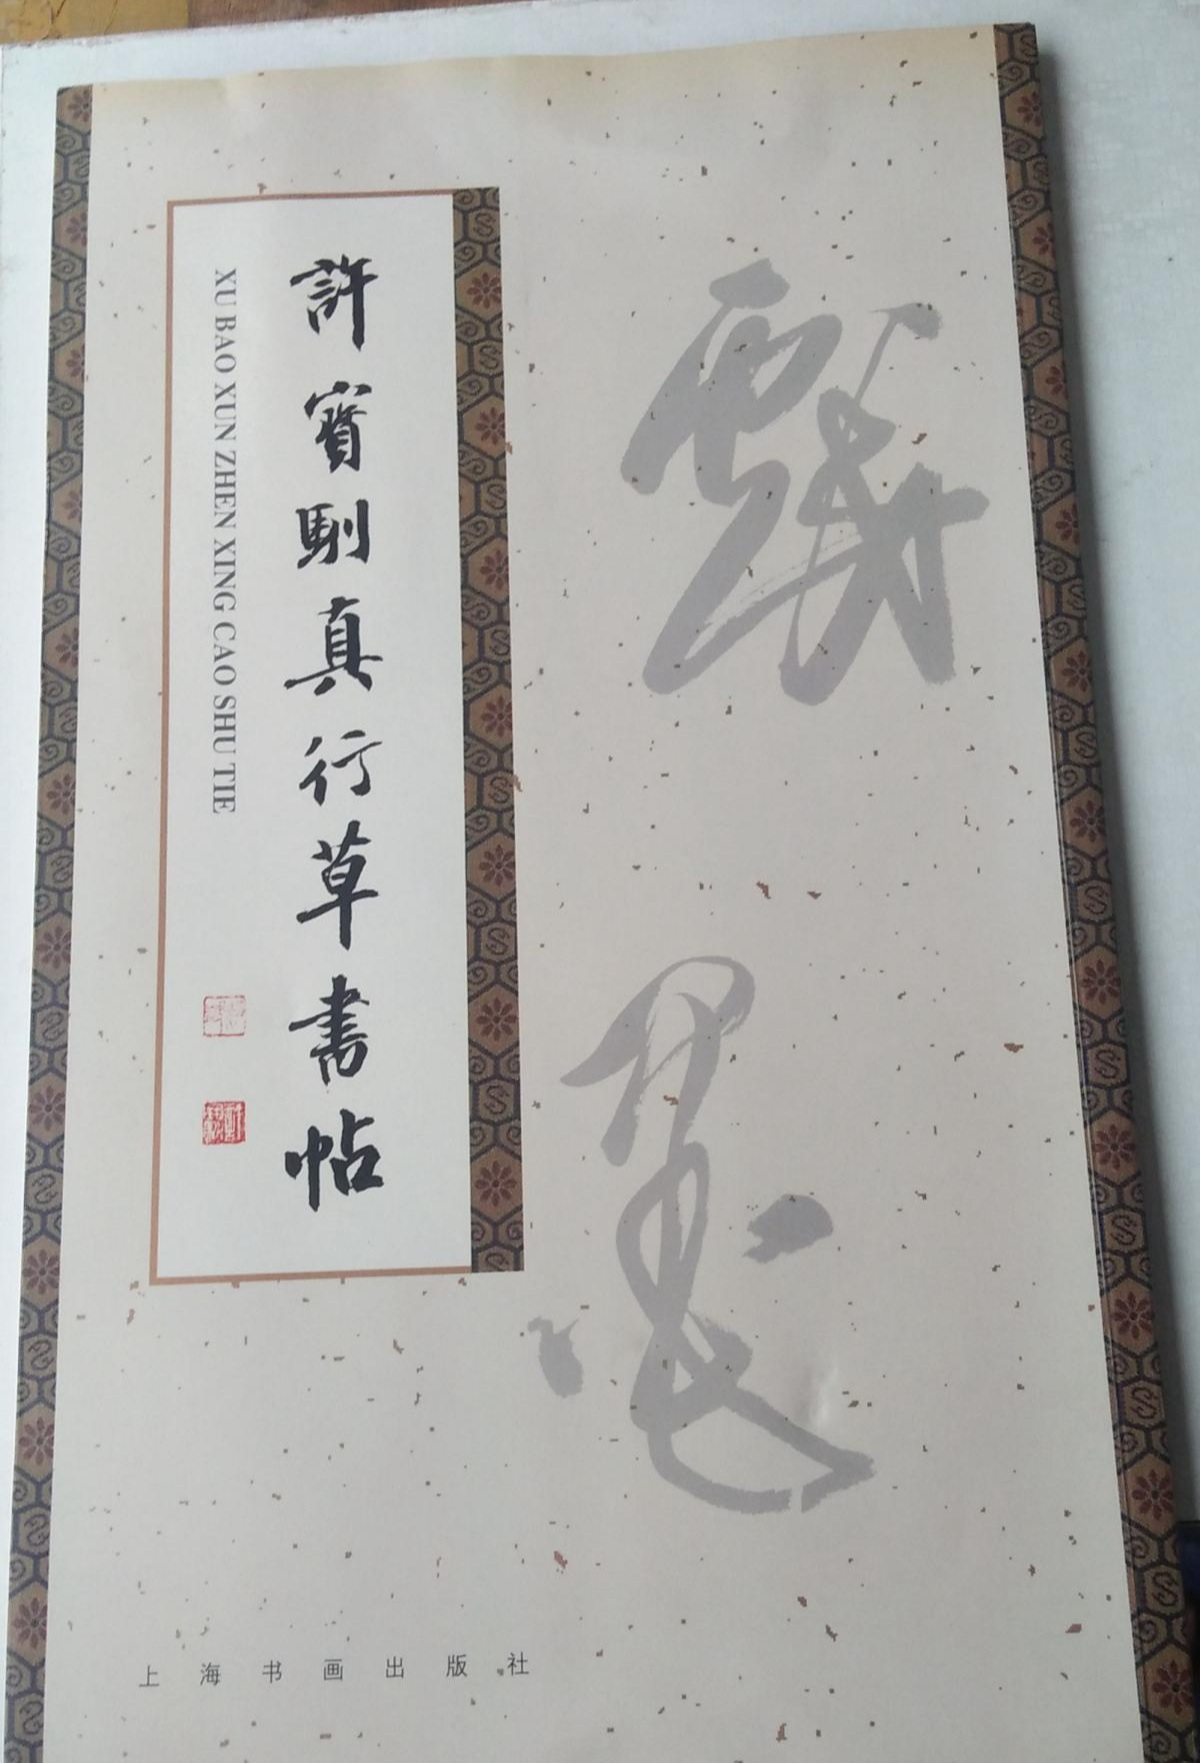 戲墨
許寶馴真行草書帖
XU BAO XUN ZHEN XING CAO SHU TIE
上海书画出版社